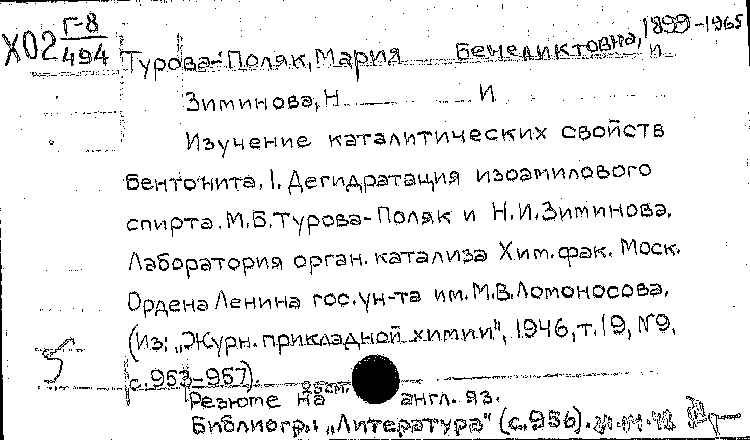 Х02 Г-8/494
Турова-Поляк, Мария Бенедиктовна, 1899-1965 и
Зиминова, Н И
Изучение каталитических свойств
бентонита. 1. Дегидратация изоамилового
спирта. М.Б. Турова-Поляк и Н.И. Зиминова.
Лаборатория орган. катализа Хим. фак. Моск.
Ордена Ленина гос. ун-та им. М.В. Ломоносова.
(Из: „Журн. прикладной химии", 1946, т. 19, №9,
с. 953-957).
Резюме на англ. яз.
Библиогр.: „Литература" (с. 956).